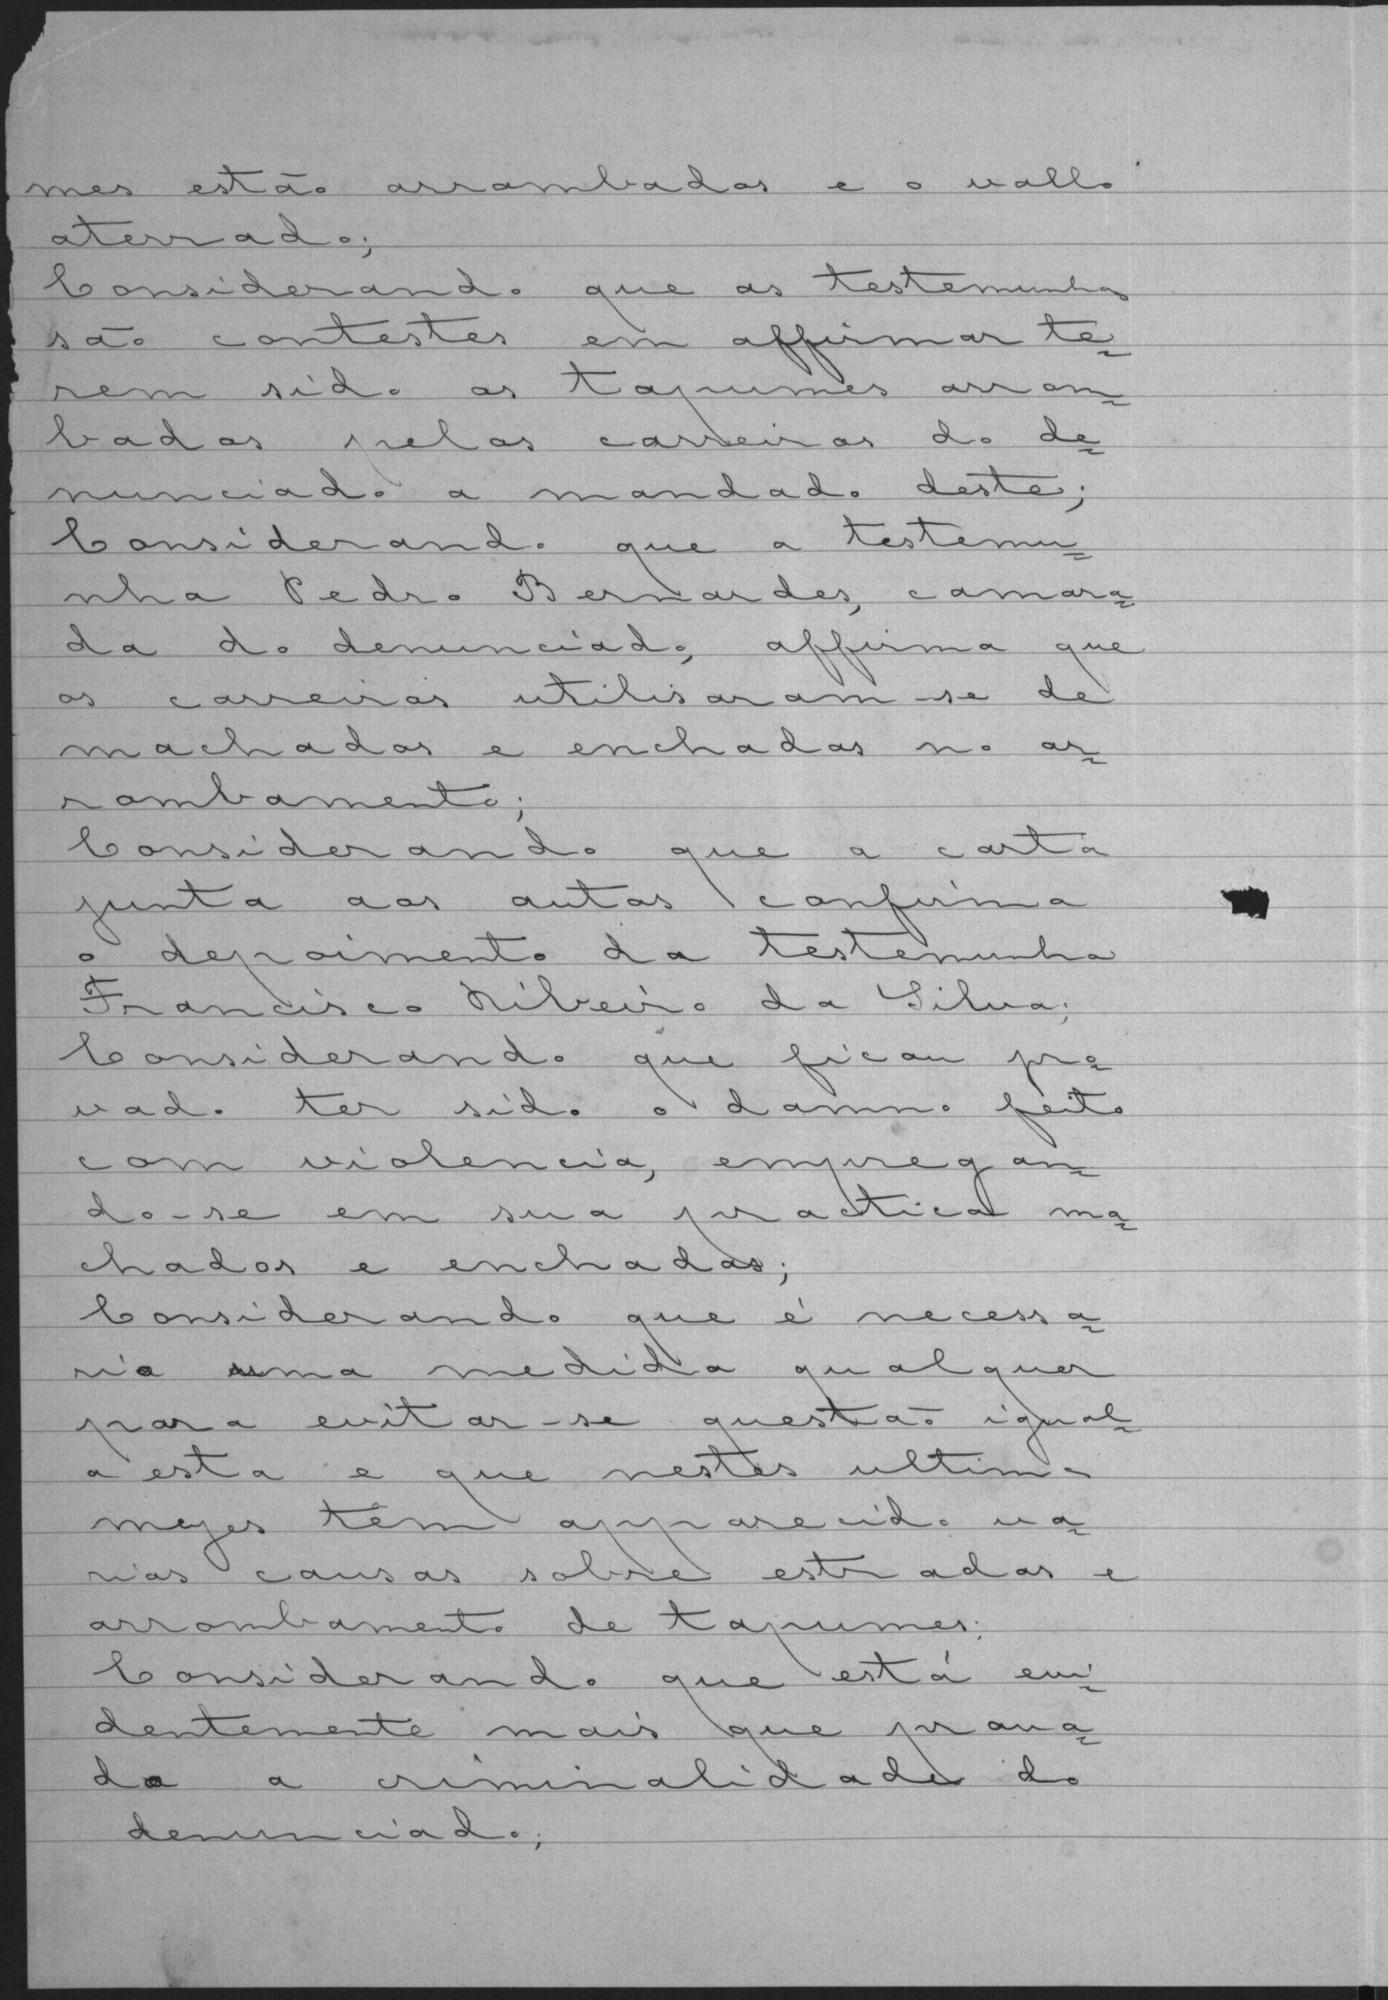 mes estão arrombados e o vallo
aterrado;
Considerando que as testemunhas
são contestes em affirmar te=
rem sido os tapumes arrom=
bados pelos carreiros do de=
nunciado a mandado deste;
Considerando que a testemu=
nha Pedro Bernardes, camara=
da do denunciado, affirma que
os carreiros utilisaram-se de
machados e enchadas no ar=
rombamento;
Considerando que a carta
junta aos autos confirma
o depoimento da testemunha
Francisco Ribeiro da Silva;
Considerando que ficou pro=
vado ter sido o damno feito
com violencia, empregan=
do-se em sua practica ma=
chados e enchadas;
Considerando que é necessa=
rio uma medida qualquer
para evitar-se questão igual=
a esta e que nestes ultimos
mezes têm apparecido va=
rias causas sobre estradas e
arrombamento de tapumes;
Considerando que está evi=
dentemente mais que prova=
da a criminalidade do
denunciado;